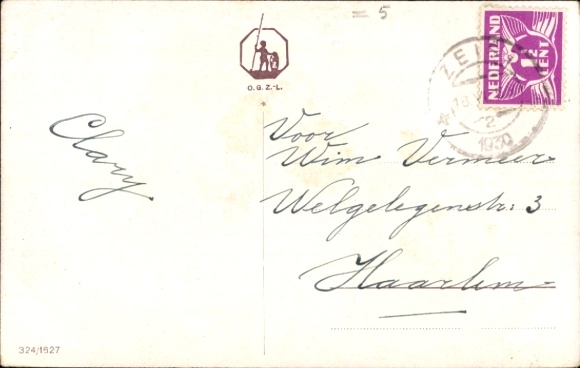 = 5
O. G. Z.-L.
NEDERLAND
1½
CENT
ZEI
18
2
1930
Clary
Voor
Wim Vermeer
Welgelegenstr: 3
Haarlem
324/1627